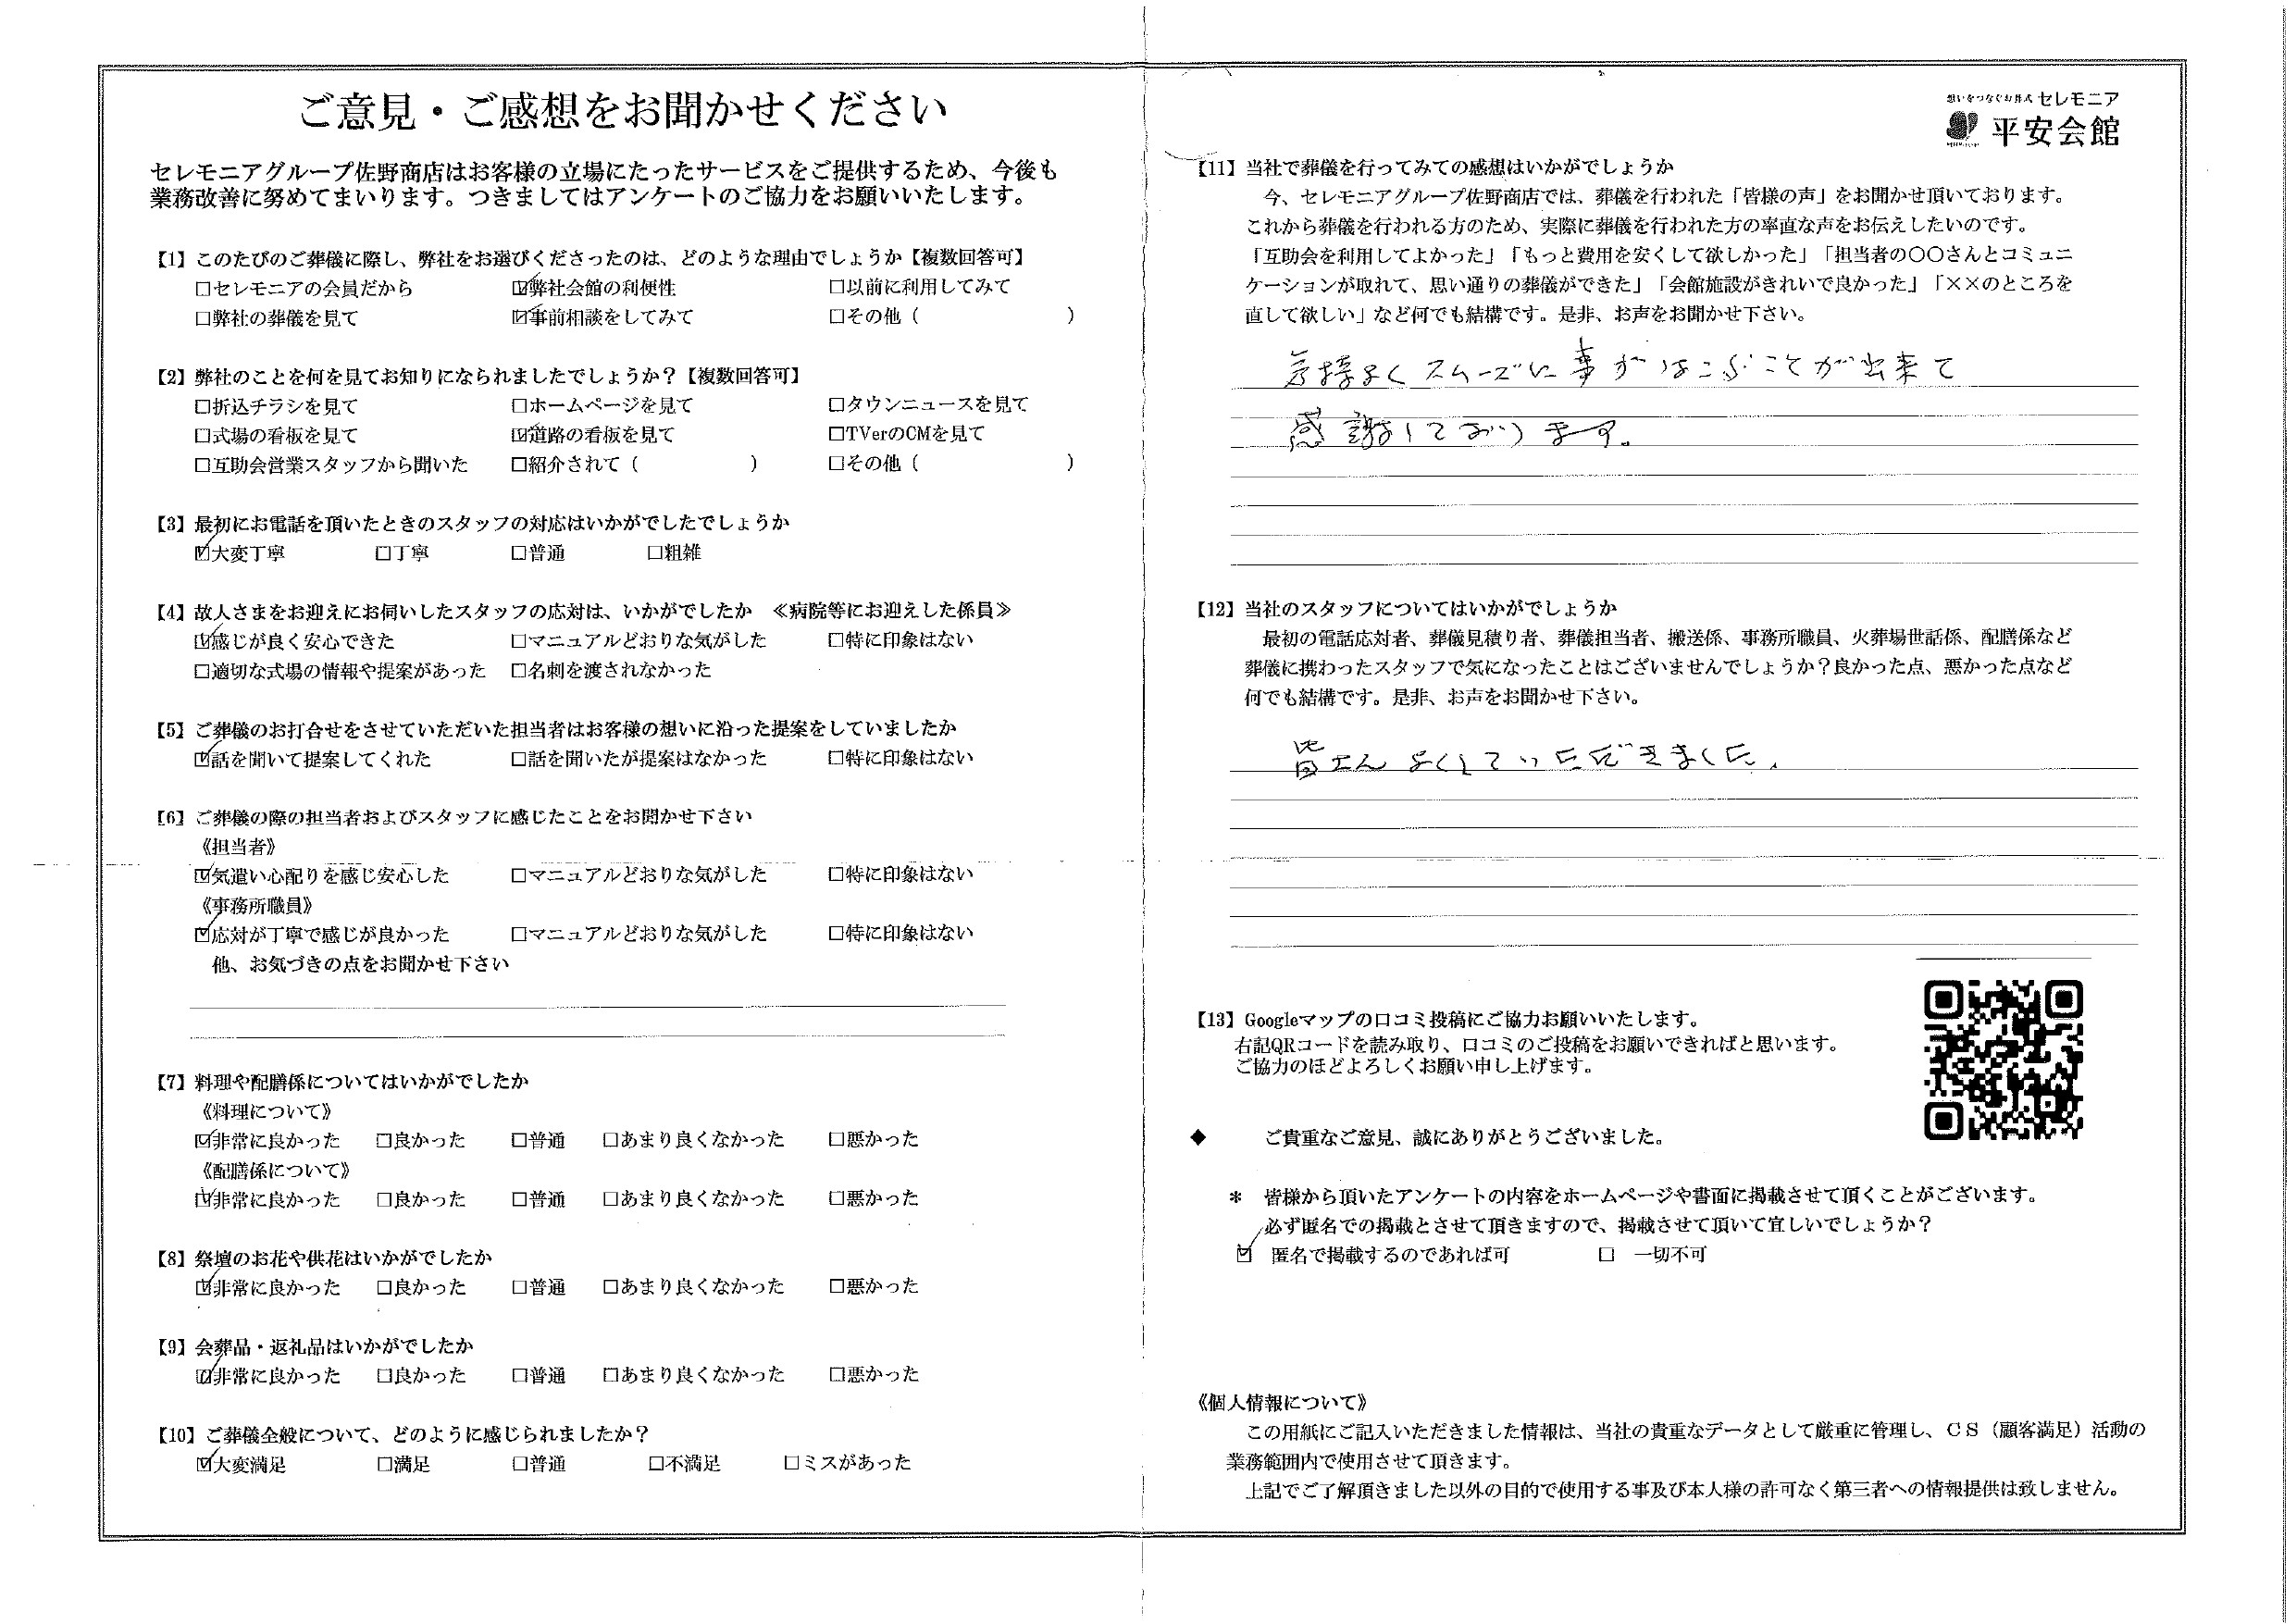 ご意見・ご感想をお聞かせください
セレモニアグループ佐野商店はお客様の立場にたったサービスをご提供するため、今後も
業務改善に努めてまいります。つきましてはアンケートのご協力をお願いいたします。
【1】このたびのご葬儀に際し、弊社をお選びくださったのは、どのような理由でしょうか【複数回答可】
□セレモニアの会員だから ☑弊社会館の利便性 □以前に利用してみて
□弊社の葬儀を見て ☑事前相談をしてみて □その他（ ）
【2】弊社のことを何を見てお知りになられましたでしょうか？【複数回答可】
□折込チラシを見て □ホームページを見て □タウンニュースを見て
□式場の看板を見て ☑道路の看板を見て □TVerのCMを見て
□互助会営業スタッフから聞いた □紹介されて（ ） □その他（ ）
【3】最初にお電話を頂いたときのスタッフの対応はいかがでしたでしょうか
☑大変丁寧 □丁寧 □普通 □粗雑
【4】故人さまをお迎えにお伺いしたスタッフの応対は、いかがでしたか ≪病院等にお迎えした係員≫
☑感じが良く安心できた □マニュアルどおりな気がした □特に印象はない
□適切な式場の情報や提案があった □名刺を渡されなかった
【5】ご葬儀のお打合せをさせていただいた担当者はお客様の想いに沿った提案をしていましたか
☑話を聞いて提案してくれた □話を聞いたが提案はなかった □特に印象はない
【6】ご葬儀の際の担当者およびスタッフに感じたことをお聞かせ下さい
《担当者》
☑気遣い心配りを感じ安心した □マニュアルどおりな気がした □特に印象はない
《事務所職員》
☑応対が丁寧で感じが良かった □マニュアルどおりな気がした □特に印象はない
他、お気づきの点をお聞かせ下さい
【7】料理や配膳係についてはいかがでしたか
《料理について》
☑非常に良かった □良かった □普通 □あまり良くなかった □悪かった
《配膳係について》
☑非常に良かった □良かった □普通 □あまり良くなかった □悪かった
【8】祭壇のお花や供花はいかがでしたか
☑非常に良かった □良かった □普通 □あまり良くなかった □悪かった
【9】会葬品・返礼品はいかがでしたか
☑非常に良かった □良かった □普通 □あまり良くなかった □悪かった
【10】ご葬儀全般について、どのように感じられましたか？
☑大変満足 □満足 □普通 □不満足 □ミスがあった
想いをつなぐお葬式 セレモニア
平安会館
【11】当社で葬儀を行ってみての感想はいかがでしょうか
今、セレモニアグループ佐野商店では、葬儀を行われた「皆様の声」をお聞かせ頂いております。
これから葬儀を行われる方のため、実際に葬儀を行われた方の率直な声をお伝えしたいのです。
「互助会を利用してよかった」「もっと費用を安くして欲しかった」「担当者の〇〇さんとコミュニ
ケーションが取れて、思い通りの葬儀ができた」「会館施設がきれいで良かった」「××のところを
直して欲しい」など何でも結構です。是非、お声をお聞かせ下さい。
気持よくスムーズに事がはこぶことが出来て
感謝しております。
【12】当社のスタッフについてはいかがでしょうか
最初の電話応対者、葬儀見積り者、葬儀担当者、搬送係、事務所職員、火葬場世話係、配膳係など
葬儀に携わったスタッフで気になったことはございませんでしょうか？良かった点、悪かった点など
何でも結構です。是非、お声をお聞かせ下さい。
皆さんよくしていただきました。
【13】Googleマップの口コミ投稿にご協力お願いいたします。
右記QRコードを読み取り、口コミのご投稿をお願いできればと思います。
ご協力のほどよろしくお願い申し上げます。
◆ ご貴重なご意見、誠にありがとうございました。
＊ 皆様から頂いたアンケートの内容をホームページや書面に掲載させて頂くことがございます。
必ず匿名での掲載とさせて頂きますので、掲載させて頂いて宜しいでしょうか？
☑ 匿名で掲載するのであれば可 □ 一切不可
《個人情報について》
この用紙にご記入いただきました情報は、当社の貴重なデータとして厳重に管理し、ＣＳ（顧客満足）活動の
業務範囲内で使用させて頂きます。
上記でご了解頂きました以外の目的で使用する事及び本人様の許可なく第三者への情報提供は致しません。